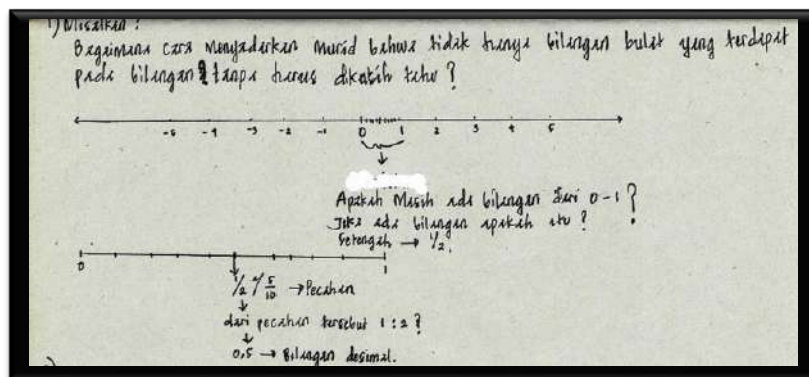 1) Misalkan :
Bagaimana cara menyadarkan murid bahwa tidak hanya bilangan bulat yang terdapat
pada bilangan tanpa harus dikasih tahu ?
-5 -4 -3 -2 -1 0 1 2 3 4 5
Apakah Masih ada bilangan dari 0-1 ?
Jika ada bilangan apakah itu ?
Setengah → 1/2.
0 1
1/2 5/10 → Pecahan
dari pecahan tersebut 1 : 2 ?
0,5 → Bilangan desimal.